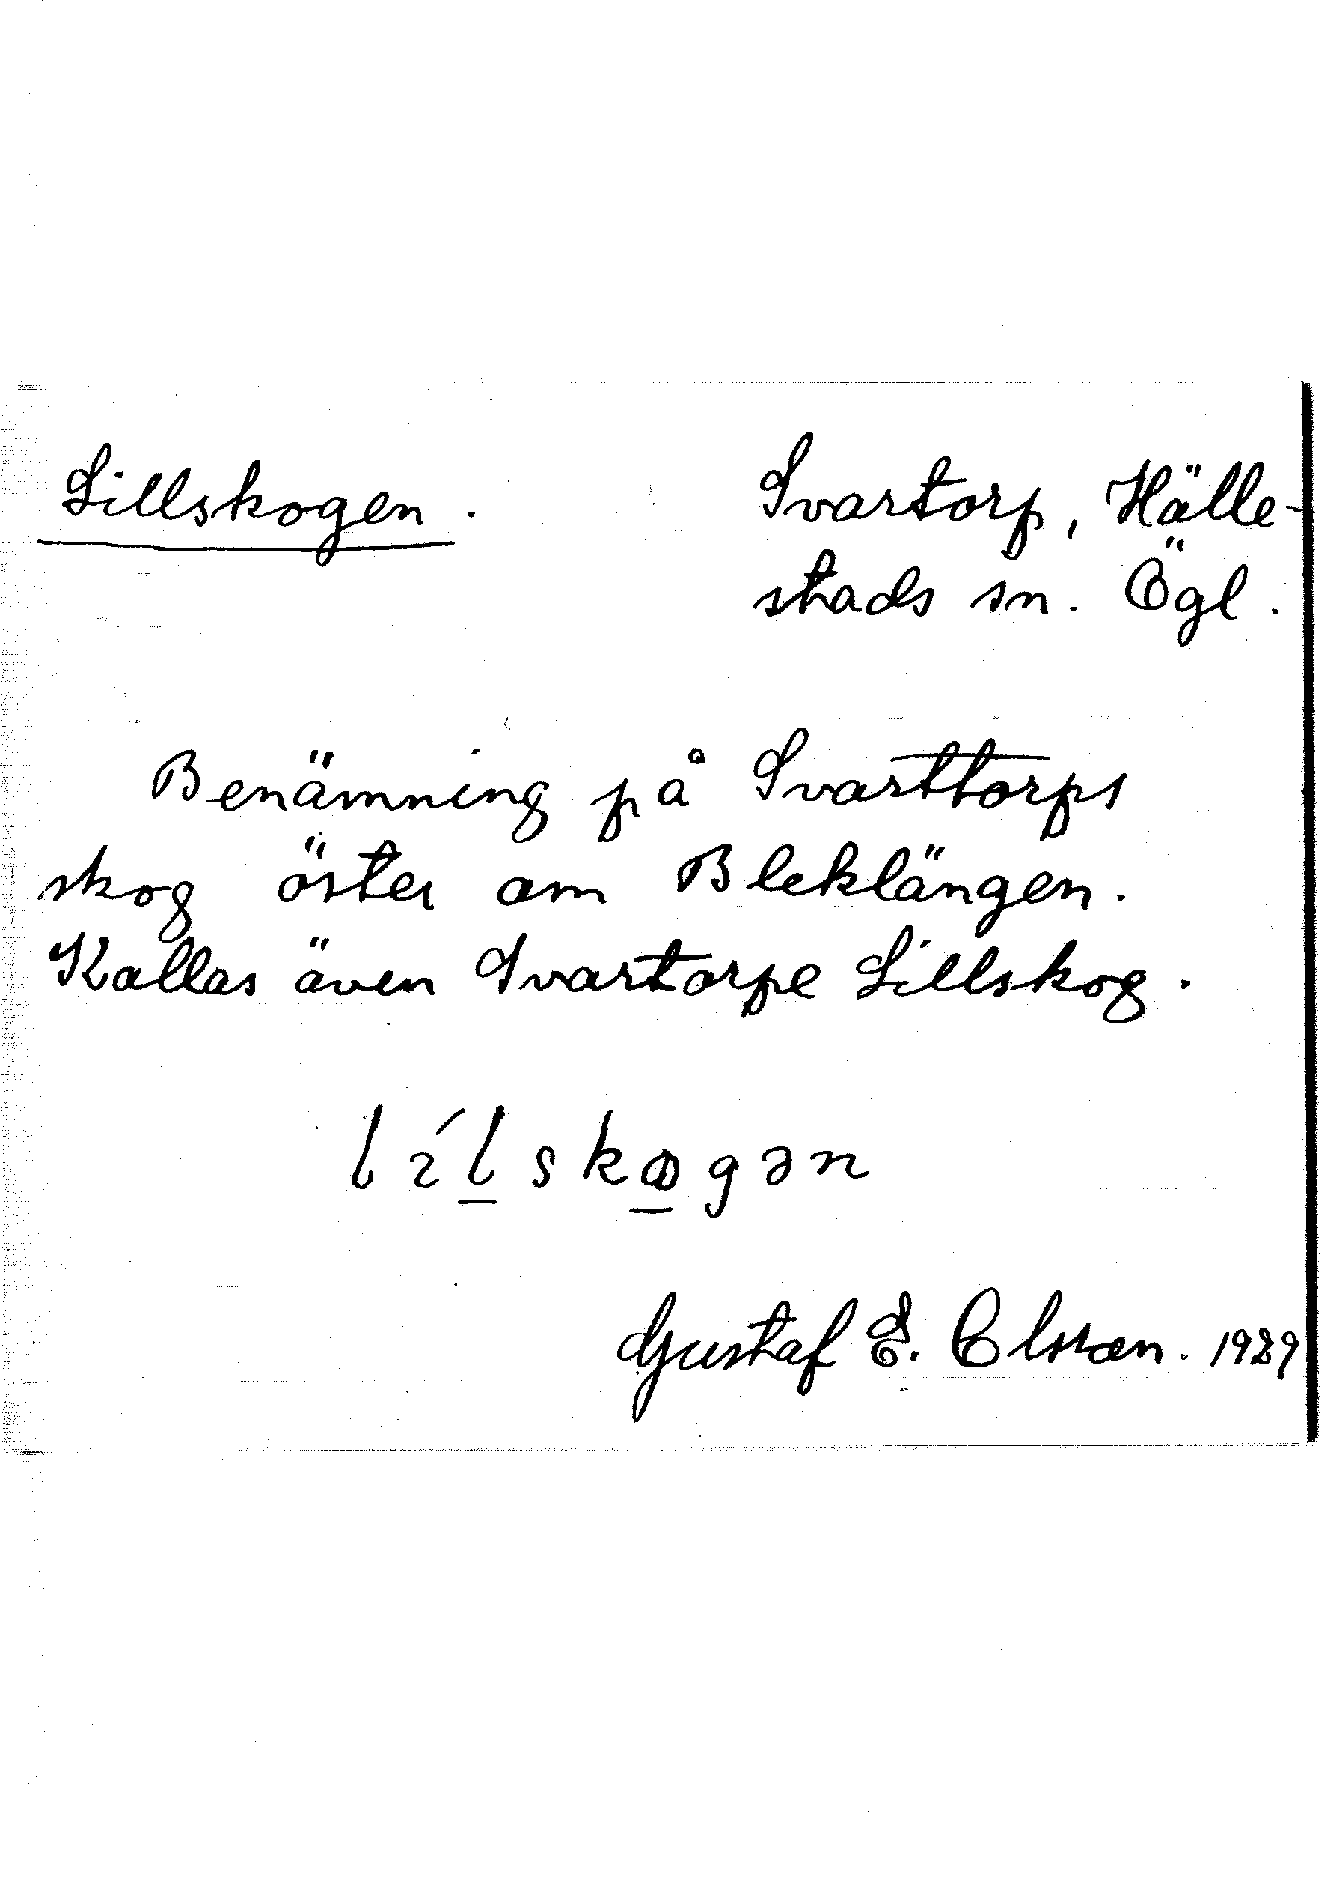 Lillskogen.
Svartorp, Hälle-
stads sn. Ögl.
Benämning på Svarttorps
skog öster om Bleklängen.
Kallas även Svartorpe Lillskog.
lílskogən
Gustaf E. Olsson. 1929